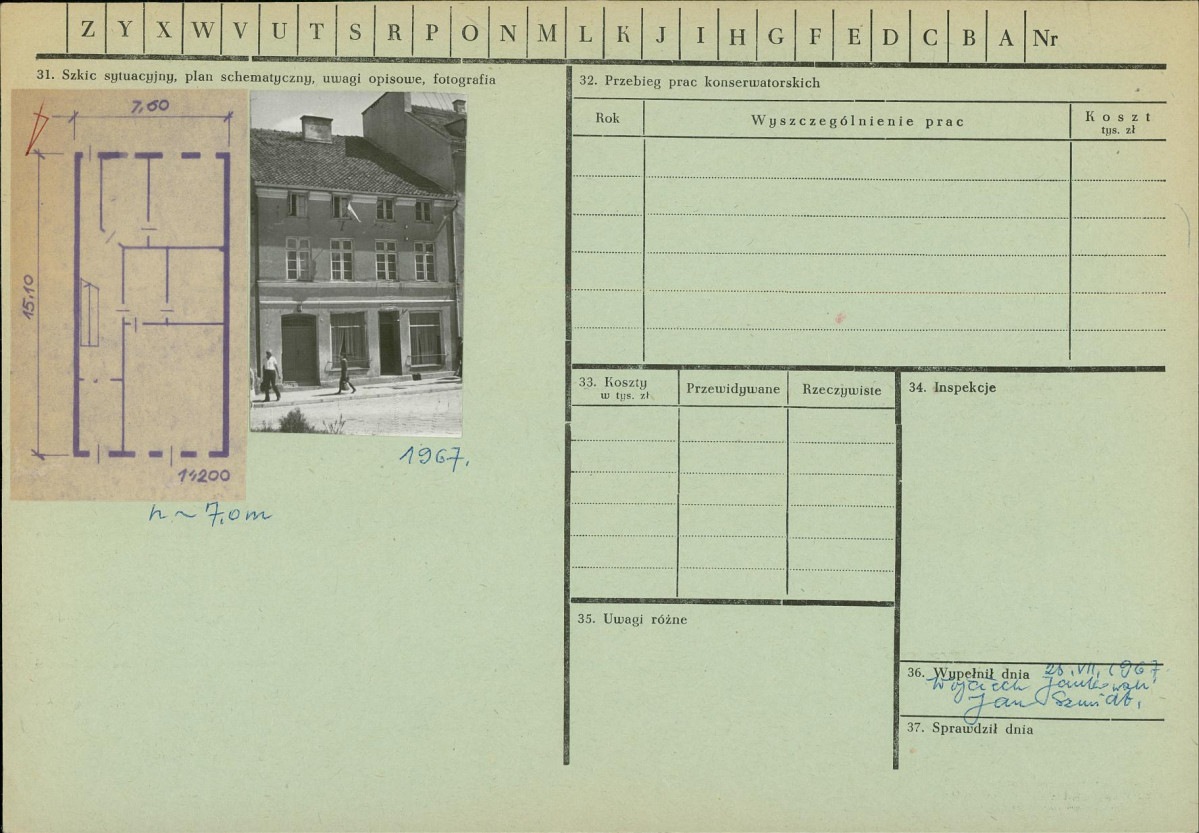 Z Y X W V U T S R P O N M L K J I H G F E D C B A Nr
31. Szkic sytuacyjny, plan schematyczny, uwagi opisowe, fotografia
7,60
15,10
1:200
h ~ 7,0 m
1967.
32. Przebieg prac konserwatorskich
Rok
Wyszczególnienie prac
Koszt
tys. zł
33. Koszty
w tys. zł
Przewidywane
Rzeczywiste
34. Inspekcje
35. Uwagi różne
36. Wypełnił dnia 25.VII.1967
Wojciech Jankowski
Jan Szmidt.
37. Sprawdził dnia